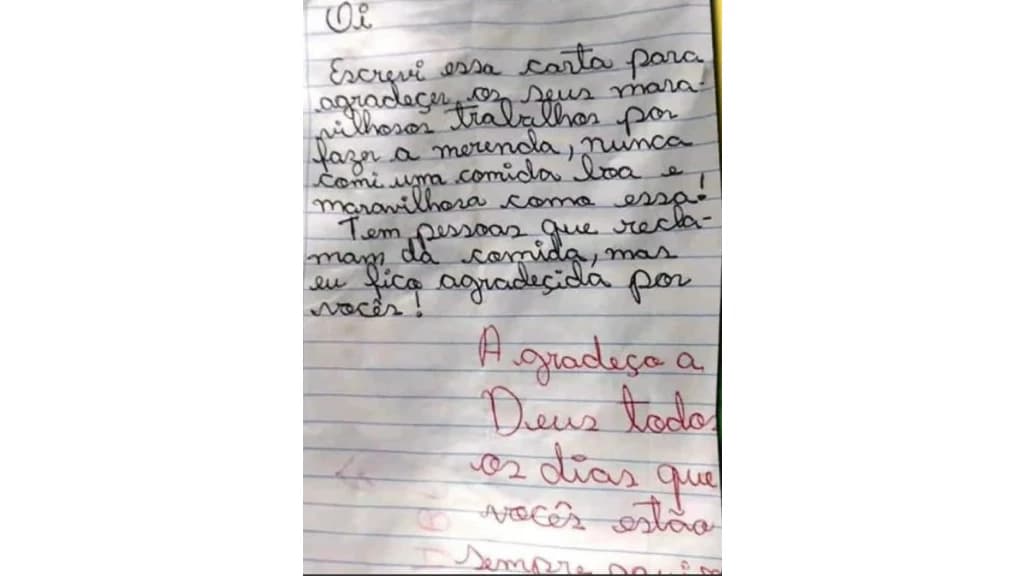 Oi
Escrevi essa carta para
agradeçer os seus mara-
vilhosos trabalhos por
fazer a merenda, nunca
comi uma comida boa e
maravilhosa como essa!
Tem pessoas que recla-
mam da comida, mas
eu fico agradeçida por
vocês!
Agradeço a
Deus todos
os dias que
vocês estão
sempre